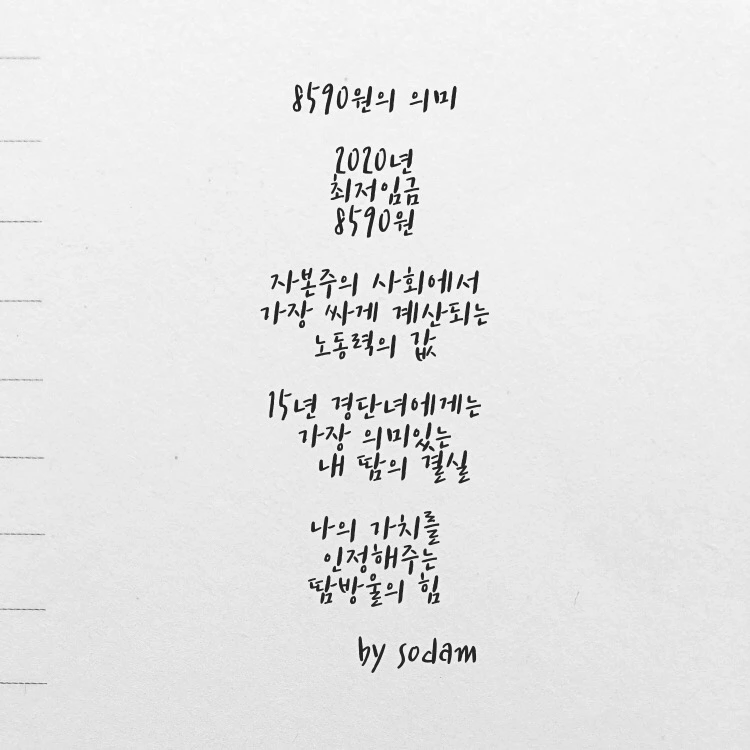 8590원의 의미
2020년
최저임금
8590원
자본주의 사회에서
가장 싸게 계산되는
노동력의 값
15년 경단녀에게는
가장 의미있는
내 땀의 결실
나의 가치를
인정해주는
땀방울의 힘
by sodam